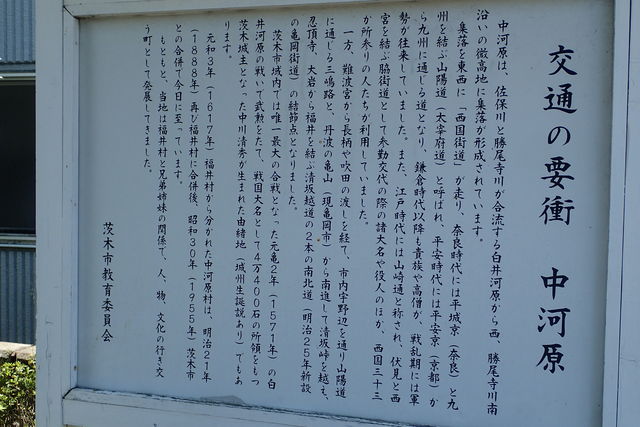 交通の要衝　中河原
中河原は、佐保川と勝尾寺川が合流する白井河原から西、勝尾寺川南
沿いの微高地に集落が形成されています。
集落を東西に「西国街道」が走り、奈良時代には平城京（奈良）と九
州を結ぶ山陽道（太宰府道）と呼ばれ、平安時代には平安京（京都）か
ら九州に通じる道となり、鎌倉時代以降も貴族や高僧が、戦乱期には軍
勢が往来していました。また、江戸時代には山崎通と称され、伏見と西
宮を結ぶ脇街道として参勤交代の際の諸大名や役人のほか、西国三十三
か所参りの人たちが利用していました。
一方、難波宮から長柄や吹田の渡しを経て、市内宇野辺を通り山陽道
に通じる三嶋路と、丹波の亀山（現亀岡市）から南進して清坂峠を越え、
忍頂寺、大岩から福井を結ぶ清坂越道の２本の南北道（明治２５年新設
の亀岡街道）の結節点となりました。
茨木市域内では唯一最大の合戦となった元亀２年（１５７１年）の白
井河原の戦いで武勲をたて、戦国大名として４万４００石の所領をもつ
茨木城主となった中川清秀が生まれた由緒地（城州生誕説あり）でもあ
ります。
元和３年（１６１７年）福井村から分かれた中河原村は、明治２１年
（１８８８年）再び福井村に合併後、昭和３０年（１９５５年）茨木市
との合併で今日に至っています。
もともと、当地は福井村と兄弟姉妹の関係で、人、物、文化の行き交
う町として発展してきました。
茨木市教育委員会